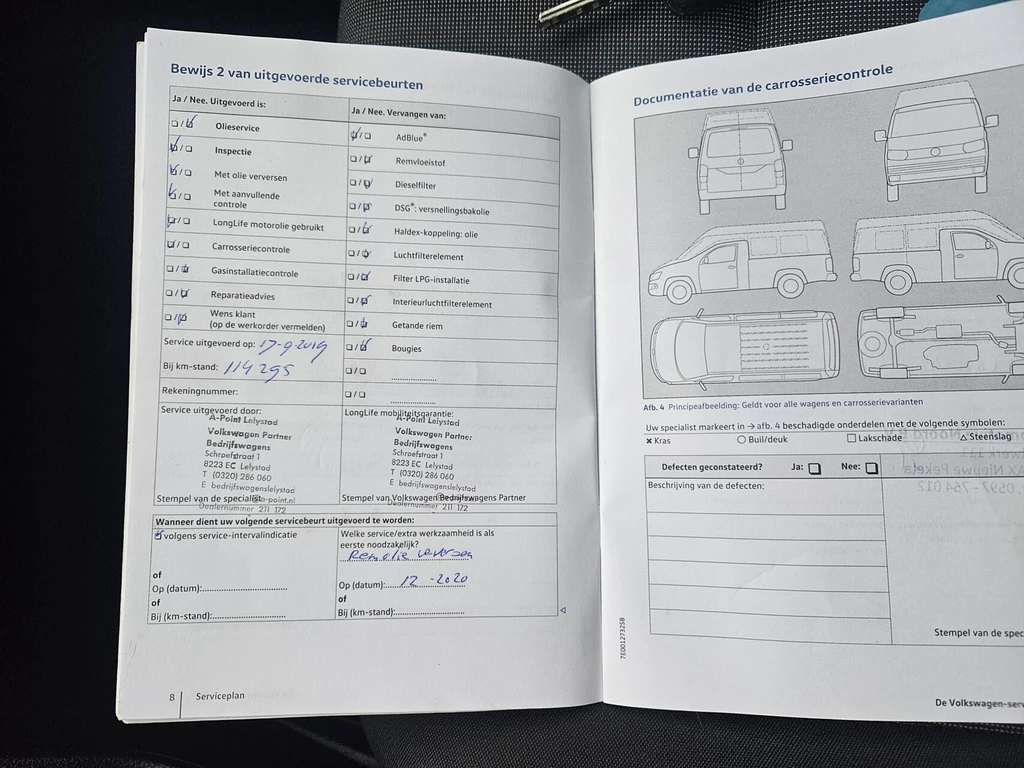 Bewijs 2 van uitgevoerde servicebeurten
Ja / Nee. Uitgevoerd is:
Olieservice
Inspectie
Met olie verversen
Met aanvullende
controle
LongLife motorolie gebruikt
Carrosseriecontrole
Gasinstallatiecontrole
Reparatieadvies
Wens klant
(op de werkorder vermelden)
Service uitgevoerd op: 17-9-2019
Bij km-stand: 114295
Rekeningnummer:
Ja / Nee. Vervangen van:
AdBlue®
Remvloeistof
Dieselfilter
DSG®: versnellingsbakolie
Haldex-koppeling: olie
Luchtfilterelement
Filter LPG-installatie
Interieurluchtfilterelement
Getande riem
Bougies
Service uitgevoerd door:
A-Point Lelystad
Volkswagen Partner
Bedrijfswagens
Schroefstraat 1
8223 EC Lelystad
T (0320) 286 060
E bedrijfswagenslelystad
@a-point.nl
Stempel van de specialist
Dealernummer 211 172
LongLife mobiliteitsgarantie:
A-Point Lelystad
Volkswagen Partner
Bedrijfswagens
Schroefstraat 1
8223 EC Lelystad
T (0320) 286 060
E bedrijfswagenslelystad
Stempel van Volkswagen Bedrijfswagens Partner
Dealernummer 211 172
Wanneer dient uw volgende servicebeurt uitgevoerd te worden:
volgens service-intervalindicatie
of
Op (datum):
of
Bij (km-stand):
Welke service/extra werkzaamheid is als
eerste noodzakelijk?
Remolie verversen
Op (datum): 12 - 2020
of
Bij (km-stand):
8 Serviceplan
Documentatie van de carrosseriecontrole
Afb. 4 Principeafbeelding: Geldt voor alle wagens en carrosserievarianten
Uw specialist markeert in → afb. 4 beschadigde onderdelen met de volgende symbolen:
× Kras ○ Buil/deuk □ Lakschade △ Steenslag
Defecten geconstateerd? Ja: Nee:
Beschrijving van de defecten:
Stempel van de spec
7E0012732SB
De Volkswagen-serv